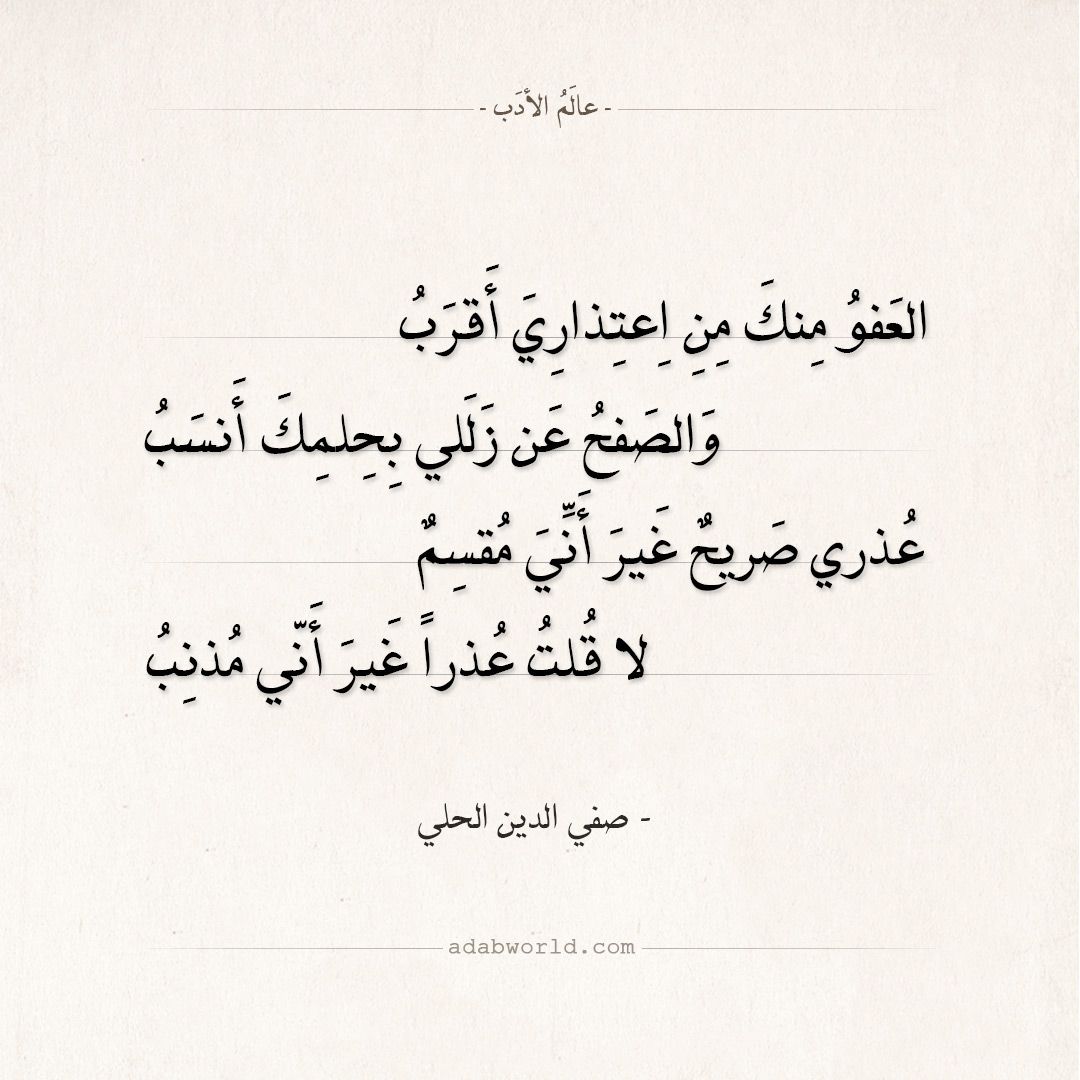 - عالَمُ الأدَب -
العَفوُ مِنكَ مِنِ اِعتِذارِيَ أَقرَبُ
وَالصَفحُ عَن زَلَلي بِحِلمِكَ أَنسَبُ
عُذري صَريحٌ غَيرَ أَنِّيَ مُقسِمٌ
لا قُلتُ عُذراً غَيرَ أَنّي مُذنِبُ
- صفي الدين الحلي
adabworld.com